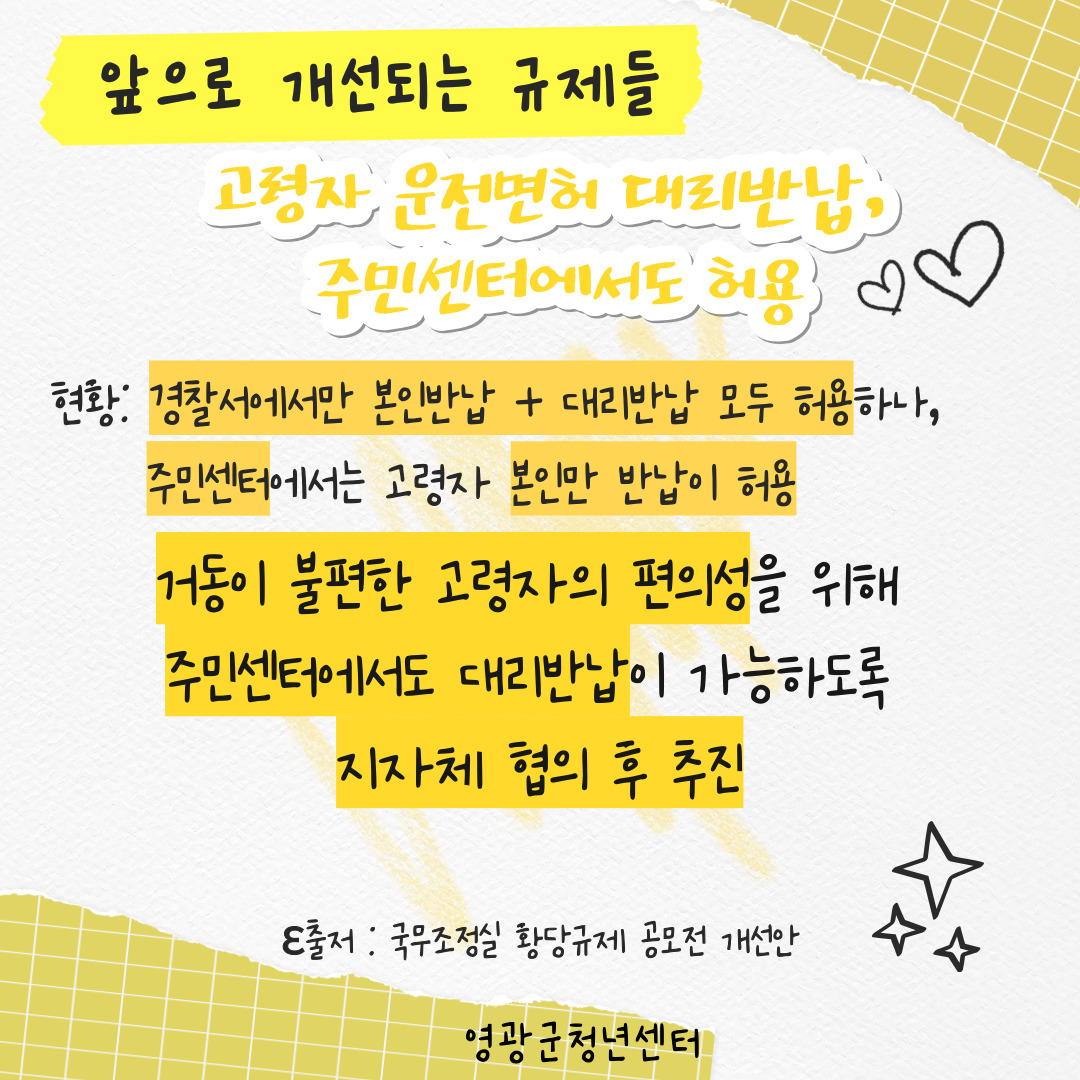 앞으로 개선되는 규제들
고령자 운전면허 대리반납,
주민센터에서도 허용
현황: 경찰서에서만 본인반납 + 대리반납 모두 허용하나,
주민센터에서는 고령자 본인만 반납이 허용
거동이 불편한 고령자의 편의성을 위해
주민센터에서도 대리반납이 가능하도록
지자체 협의 후 추진
ε출저 : 국무조정실 황당규제 공모전 개선안
영광군청년센터